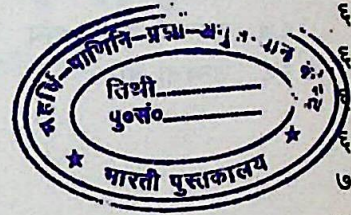 महर्षि-पाणिनि-प्रज्ञा-
तिथी
पु०सं०
★ भारती पुस्तकालय ★
६
६
६
७